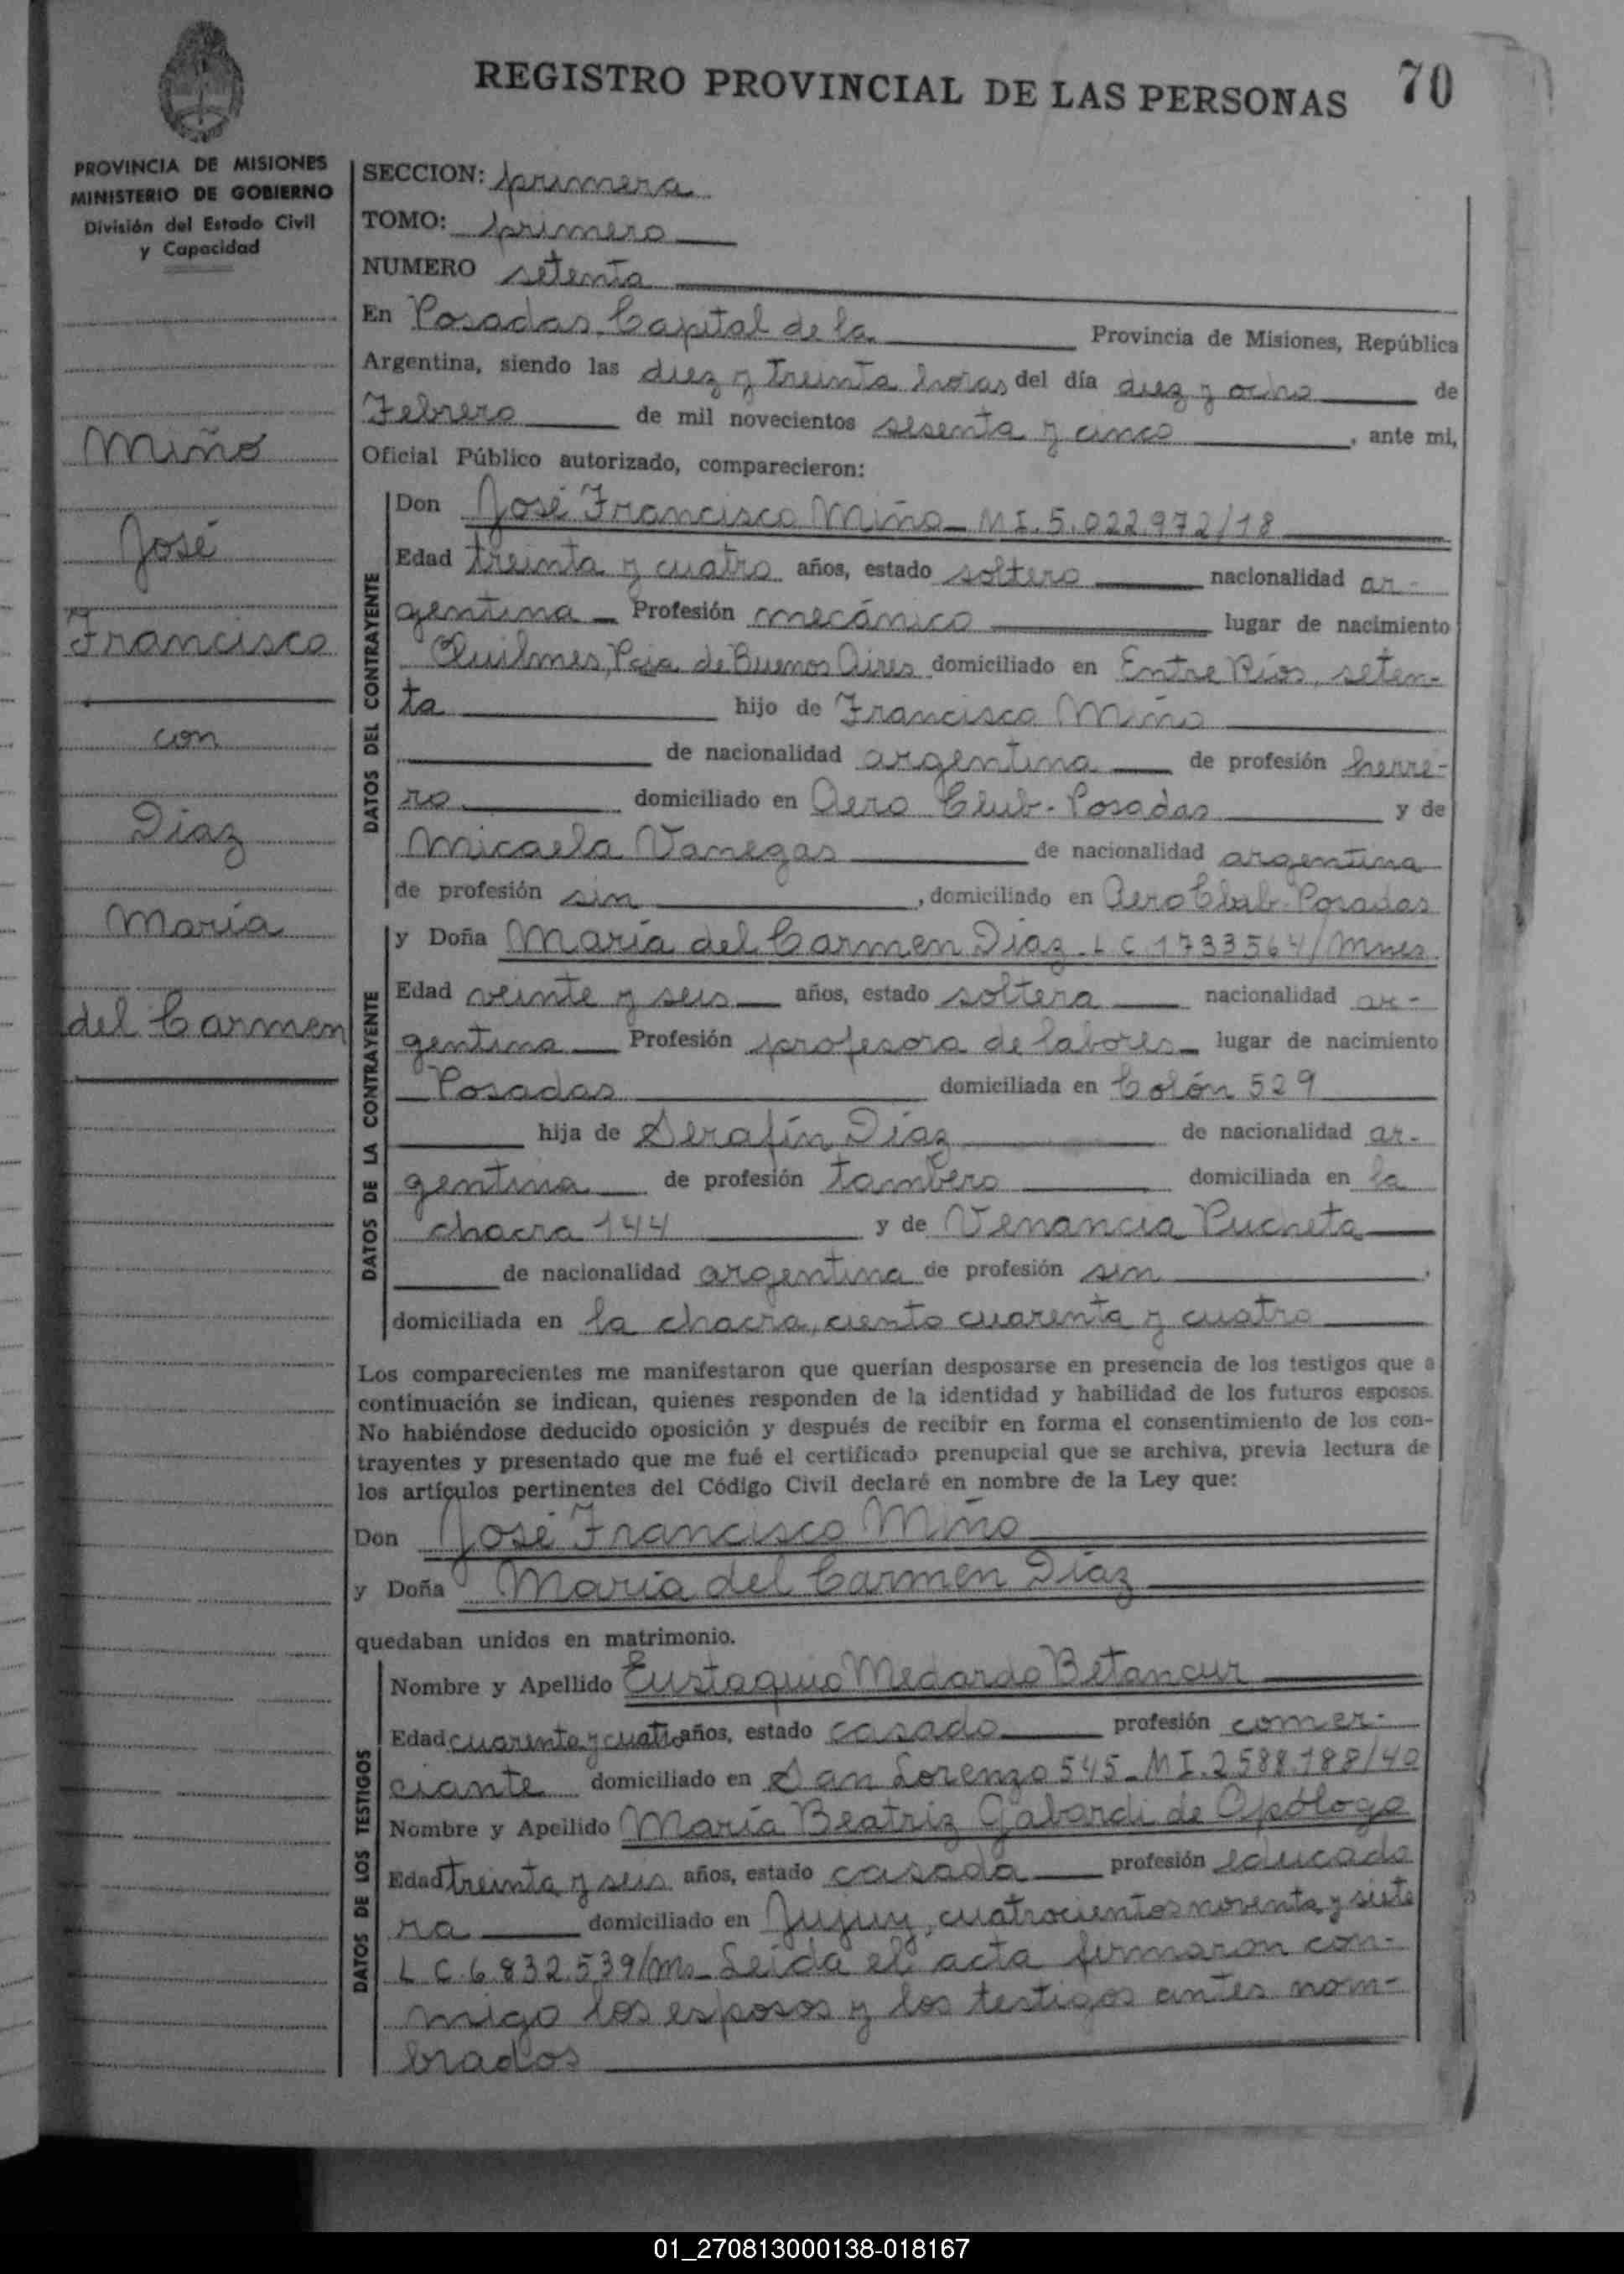 REGISTRO PROVINCIAL DE LAS PERSONAS 70
PROVINCIA DE MISIONES
MINISTERIO DE GOBIERNO
División del Estado Civil
y Capacidad
Miño
José
Francisco
con
Diaz
María
del Carmen
SECCION: primera
TOMO: primero
NUMERO setenta
En Posadas, Capital de la Provincia de Misiones, República
Argentina, siendo las diez y treinta horas del día diez y ocho de
Febrero de mil novecientos sesenta y cinco, ante mi,
Oficial Público autorizado, comparecieron:
DATOS DEL CONTRAYENTE
Don José Francisco Miño - M I. 5.022.972/18
Edad treinta y cuatro años, estado soltero nacionalidad ar-
gentina Profesión mecánico lugar de nacimiento
Quilmes, Pcia de Buenos Aires domiciliado en Entre Ríos, seten-
ta hijo de Francisco Miño
de nacionalidad argentina de profesión herre-
ro domiciliado en Aero Club - Posadas y de
Micaela Vanegas de nacionalidad argentina
de profesión sin, domiciliado en Aero Club - Posadas
DATOS DE LA CONTRAYENTE
y Doña María del Carmen Díaz - L C 1733564/Mnes
Edad veinte y seis años, estado soltera nacionalidad ar-
gentina Profesión profesora de labores lugar de nacimiento
Posadas domiciliada en Colón 529
hija de Serafín Díaz de nacionalidad ar-
gentina de profesión tambero domiciliada en la
chacra 144 y de Venancia Pucheta
de nacionalidad argentina de profesión sin,
domiciliada en la chacra, ciento cuarenta y cuatro
Los comparecientes me manifestaron que querían desposarse en presencia de los testigos que a
continuación se indican, quienes responden de la identidad y habilidad de los futuros esposos.
No habiéndose deducido oposición y después de recibir en forma el consentimiento de los con-
trayentes y presentado que me fué el certificado prenupcial que se archiva, previa lectura de
los artículos pertinentes del Código Civil declaré en nombre de la Ley que:
Don José Francisco Miño
y Doña María del Carmen Díaz
quedaban unidos en matrimonio.
DATOS DE LOS TESTIGOS
Nombre y Apellido Eustaquio Medardo Betancur
Edad cuarenta y cuatro años, estado casado profesión comer-
ciante domiciliado en San Lorenzo 545 - M I. 2.588.188/40
Nombre y Apellido María Beatriz Gabardi de Opólogo
Edad treinta y seis años, estado casada profesión educado
ra domiciliado en Jujuy, cuatrocientos noventa y siete
L C. 6.832.539/Ms - Leida el acta firmaron con-
migo los esposos y los testigos antes nom-
brados
01_270813000138-018167